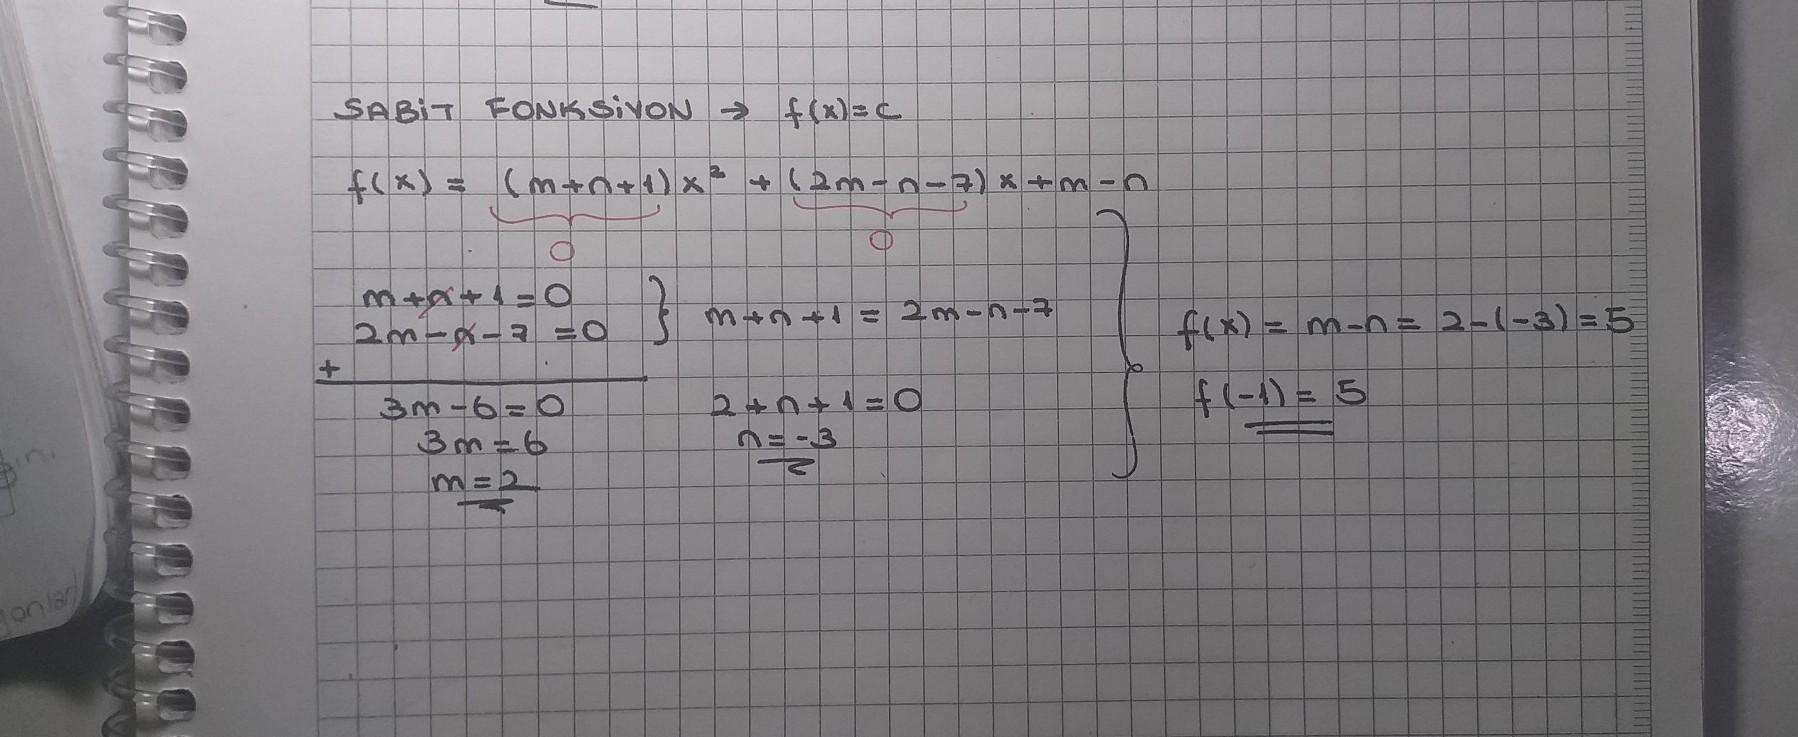 SABİT FONKSİYON → f(x)=c
f(x) = (m+n+1)x² + (2m-n-7)x+m-n
0 0
m+n+1=0
2m-n-7=0
+
3m-6=0
3m=6
m=2
m+n+1 = 2m-n-7
2+n+1=0
n=-3
f(x) = m-n = 2-(-3)=5
f(-1)=5